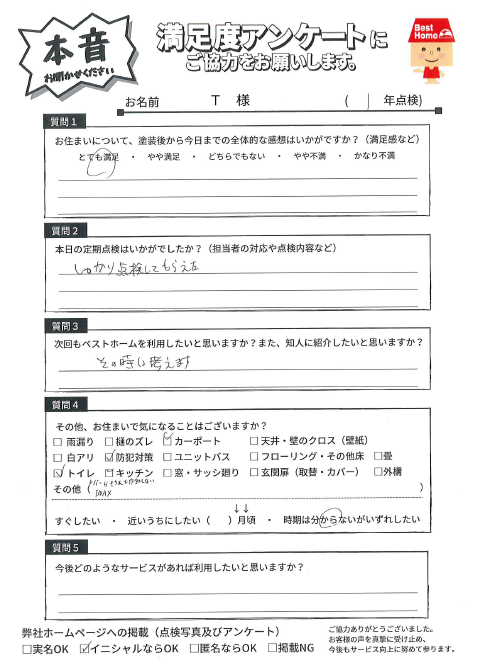 本音
お聞かせください
満足度アンケートに
ご協力をお願いします。
Best Home
お名前 T 様 ( 年点検)
質問1
お住まいについて、塗装後から今日までの全体的な感想はいかがですか？（満足感など）
とても満足 ・ やや満足 ・ どちらでもない ・ やや不満 ・ かなり不満
質問2
本日の定期点検はいかがでしたか？（担当者の対応や点検内容など）
しっかり点検してもらえた
質問3
次回もベストホームを利用したいと思いますか？また、知人に紹介したいと思いますか？
その時に考えます
質問4
その他、お住まいで気になることはございますか？
□ 雨漏り □ 樋のズレ ☑ カーポート □ 天井・壁のクロス（壁紙）
□ 白アリ ☑ 防犯対策 □ ユニットバス □ フローリング・その他床 □ 畳
☑ トイレ □ キッチン □ 窓・サッシ廻り □ 玄関扉（取替・カバー） □ 外構
その他（ ）
↓↓
すぐしたい ・ 近いうちにしたい（ ）月頃 ・ 時期は分からないがいずれしたい
質問5
今後どのようなサービスがあれば利用したいと思いますか？
弊社ホームページへの掲載（点検写真及びアンケート）
□ 実名OK ☑ イニシャルならOK □ 匿名ならOK □ 掲載NG
ご協力ありがとうございました。
お客様の声を真摯に受け止め、
今後もサービス向上に努めて参ります。